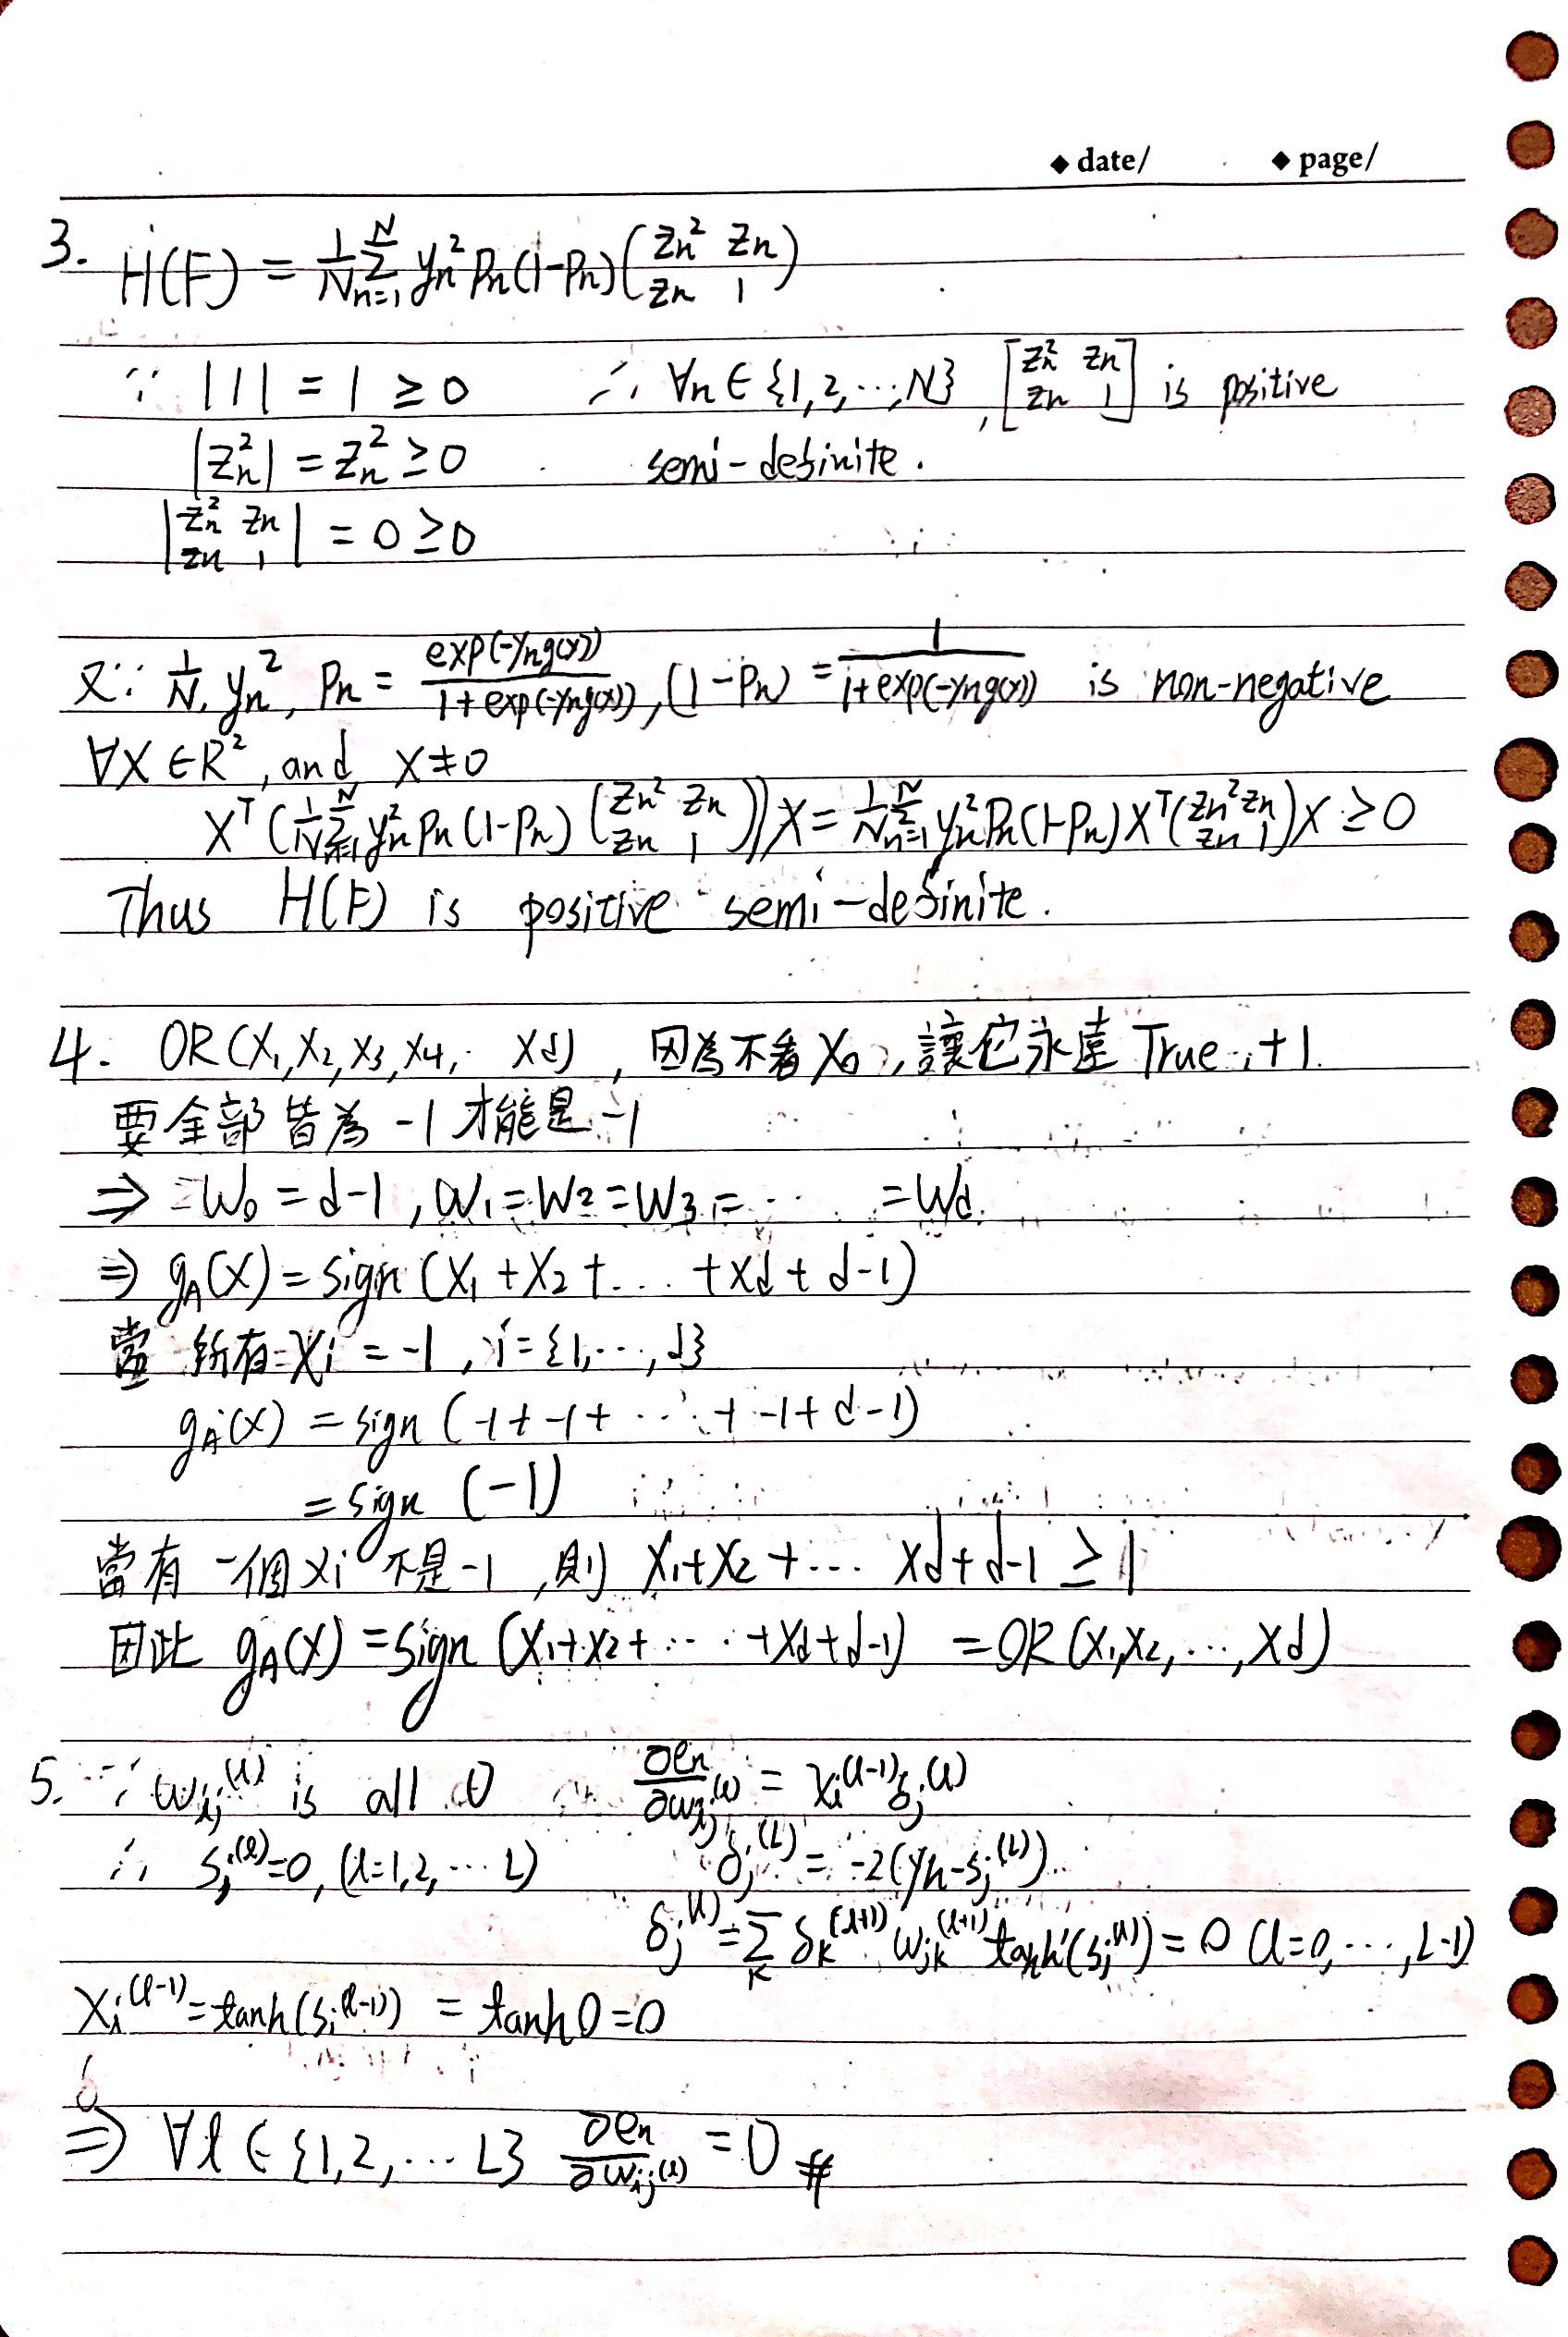 ◆ date/ ◆ page/
3. H(F) = 1/N Σ_{n=1}^{N} y_n² p_n(1-p_n) (z_n² z_n ; z_n 1)
∵ |1| = 1 ≥ 0 ∴ ∀n ∈ {1,2,…,N}, [z_n² z_n ; z_n 1] is positive
|z_n²| = z_n² ≥ 0 semi-definite.
|z_n² z_n ; z_n 1| = 0 ≥ 0
又∵ 1/N, y_n², p_n = exp(-y_n g(x)) / (1+exp(-y_n g(x))), (1-p_n) = 1 / (1+exp(-y_n g(x))) is non-negative
∀X ∈ R², and X ≠ 0
X^T (1/N Σ_{n=1}^{N} y_n² p_n (1-p_n) (z_n² z_n ; z_n 1)) X = 1/N Σ_{n=1}^{N} y_n² p_n(1-p_n) X^T (z_n² z_n ; z_n 1) X ≥ 0
Thus H(F) is positive semi-definite.
4. OR(X₁,X₂,X₃,X₄,… Xd), 因為不看X₀, 讓它永遠 True, +1.
要全部皆為 -1 才能是 -1
⇒ W₀ = d-1, W₁=W₂=W₃=… =Wd.
⇒ g_A(X) = sign (X₁+X₂+… +Xd+d-1)
當 所有 Xi = -1, i={1,…,d}
g_A(X) = sign (-1+-1+…+-1+d-1)
= sign (-1)
當有一個 Xi 不是 -1, 則 X₁+X₂+… Xd+d-1 ≥ 1
因此 g_A(X) = sign (X₁+X₂+…+Xd+d-1) = OR(X₁,X₂,…,Xd)
5. ∵ w_ij^(l) is all 0 ∂e_n/∂w_ij^(l) = x_i^(l-1) δ_j^(l)
∴ s_j^(l)=0, (l=1,2,…L) δ_j^(L) = -2(y_n-s_j^(L))
δ_j^(l) = Σ_k δ_k^(l+1) w_jk^(l+1) tanh'(s_j^(l)) = 0 (l=0,…,L-1)
x_i^(l-1) = tanh(s_i^(l-1)) = tanh0 = 0
6
⇒ ∀l ∈ {1,2,…L} ∂e_n/∂w_ij^(l) = 0 #